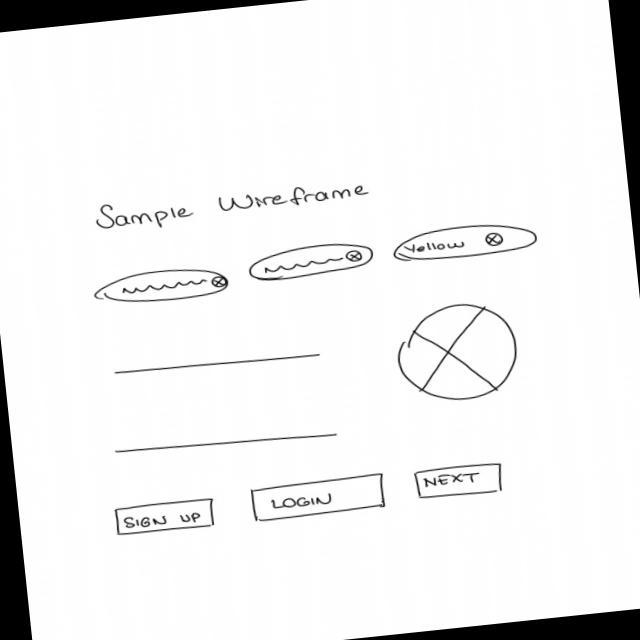 Sample Wireframe
Yellow
SIGN UP
LOGIN
NEXT